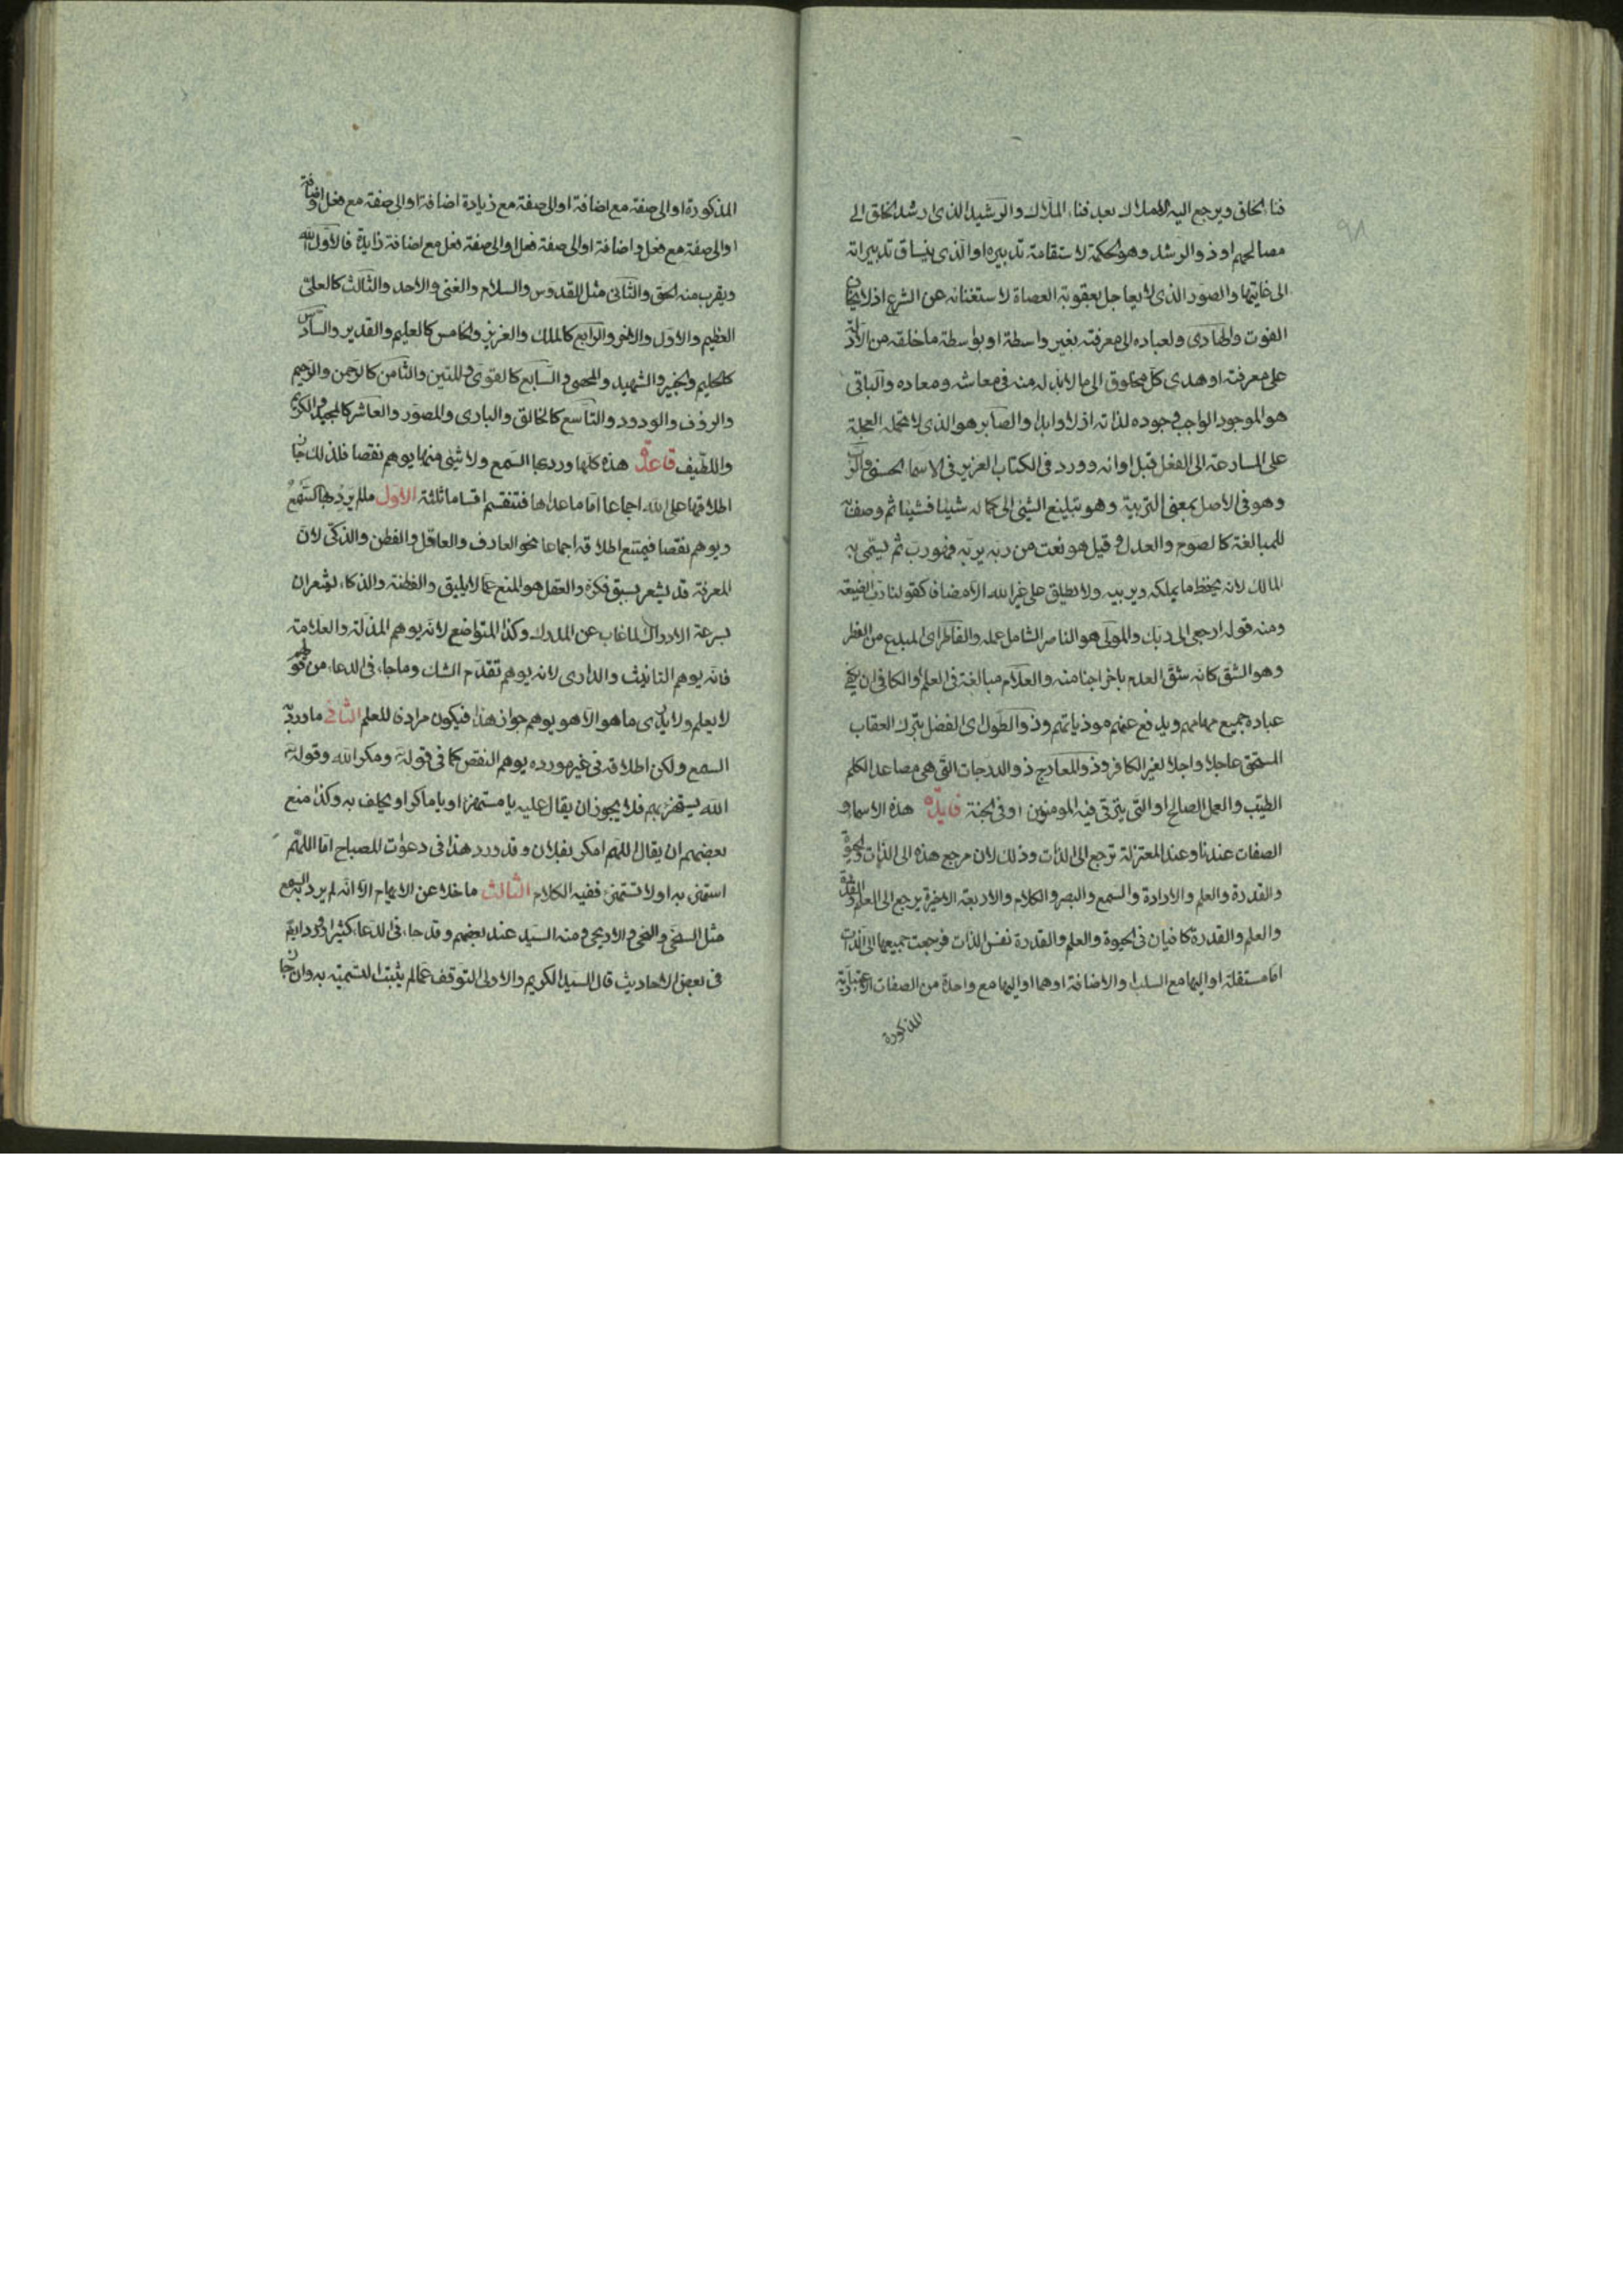 ٩٨
فناء الخلق ويرجع اليه الاملاك بعد فناء الملاك والرشيد الذى ارشد الخلق الى
مصالحهم او ذو الرشد وهو الحكمة لاستقامة تدبيره او الذى ينساق تدبيراته
الى غاياتها والصبور الذى لا يعاجل بعقوبة العصاة لاستغنائه عن التسرع اذ لا يخاف
الفوت والهادى لعباده الى معرفته بغير واسطة او بواسطة ما خلقه من الادلة
على معرفته او هدى كل مخلوق الى ما لابد له منه فى معاشه ومعاده والباقى
هو الموجود الواجب وجوده لذاته ازلا وابدا والصابر هو الذى لا تحمله العجلة
على المسارعة الى الفعل قبل اوانه وورد فى الكتاب العزيز فى الاسماء الحسنى والرب
وهو فى الاصل بمعنى التربية وهو تبليغ الشئ الى كماله شيئا فشيئا ثم وصف به
للمبالغة كالصوم والعدل وقيل هو نعت من ربه يربه فهو رب ثم سمى به
المالك لانه يحفظ ما يملكه ويربيه ولا يطلق على غير الله الا مضافا كقولنا رب الضيعة
ومنه قوله ارجعى الى ربك والمولى هو الناصر الشامل عمله والفاطر اى المبدع من الفطر
وهو الشق كانه شق العدم باخراجنا منه والعلام مبالغة فى العلم والكافى ان يكفى
عباده جميع مهامهم ويدفع عنهم موذياتهم وذو الطول اى الفضل بترك العقاب
المستحق عاجلا واجلا لغير الكافر وذو المعارج ذو الدرجات التى هى مصاعد الكلم
الطيب والعمل الصالح او التى يترقى فيه المومنون او فى الجنة فايدة هذه الاسماء و
الصفات عندنا وعند المعتزلة ترجع الى الذات وذلك لان مرجع هذه الى الذات والحيوة
والقدرة والعلم والارادة والسمع والبصر والكلام والاربعة الاخيرة يرجع الى العلم والقدرة
والعلم والقدرة كافيان فى الحيوة والعلم والقدرة نفس الذات فرجعت جميعها الى الذات
اما مستقلة او اليها مع السلب والاضافة او هما او اليها مع واحدة من الصفات الاعتبارية
المذكورة
المذكورة او الى صفة مع اضافة او الى صفة مع زيادة اضافة او الى صفة مع فعل واضافة
او الى صفة مع فعل واضافة او الى صفة فعل او الى صفة فعل مع اضافة زايدة فالاول الله
ويقرب منه الحق والثانى مثل القدوس والسلام والغنى والاحد والثالث كالعلى
العظيم والاول والاخر والرابع كالملك والعزيز والخامس كالعليم والقدير والسادس
كالحليم والخبير والشهيد والمحصى والسابع كالقوى والمتين والثامن كالرحمن والرحيم
والروف والودود والتاسع كالخالق والبارى والمصور والعاشر كالمجيد والكريم
واللطيف قاعدة هذه كلها ورد بها السمع ولا شئ منها يوهم نقصا فلذلك جاز
اطلاقها على الله اجماعا اما ما عداها فتنقسم اقساما ثلثة الاول ما لم يرد بها السمع
ويوهم نقصا فيمتنع اطلاقه اجماعا نحو العارف والعاقل والفطن والذكى لان
المعرفة قد يشعر بسبق فكرة والعقل هو المنع عما لا يليق والفطنة والذكاء يشعران
بسرعة الادراك لما غاب عن المدرك وكذا المتواضع لانه يوهم المذلة والعلامة
فانه يوهم التانيث والدارى لانه يوهم تقدم الشك وما جاء فى الدعاء من قولهم
لا يعلم ولا يدرى ما هو الا هو يوهم جواز هذا فيكون مرادفا للعلم الثانى ما ورد به
السمع ولكن اطلاقه فى غير مورده يوهم النقص كما فى قوله ومكر الله وقوله
الله يستهزئ بهم فلا يجوز ان يقال عليه يا مستهزئ او يا ماكر او يحلف به وكذا منع
بعضهم ان يقال اللهم امكر بفلان وقد ورد هذا فى دعوات المصباح اما اللهم
استهزئ به او لا تستهزئ ففيه الكلام الثالث ما خلا عن الايهام الا انه لم يرد به السمع
مثل السخى والنخى والاريحى ومنه السيد عند بعضهم وقد جاء فى الدعاء كثيرا وورد ايضا
فى بعض الاحاديث قال السيد الكريم والاولى التوقف عما لم يثبت التسمية به وان جاز